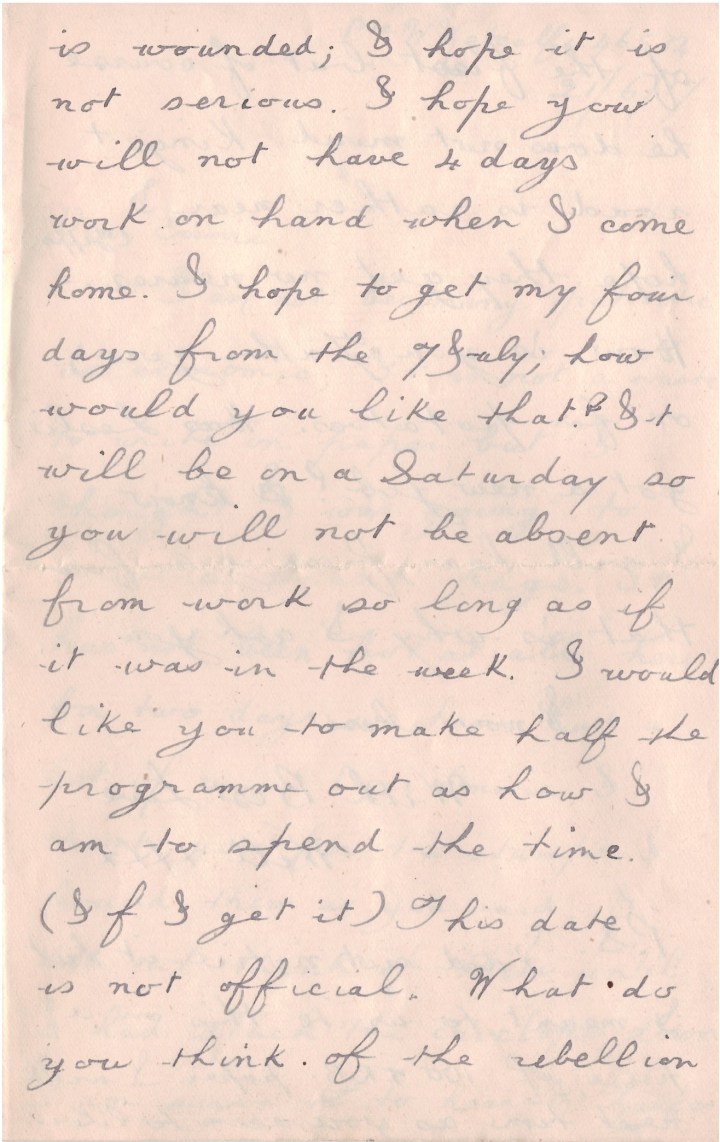 is wounded; I hope it is
not serious. I hope you
will not have 4 days
work on hand when I come
home. I hope to get my four
days from the 7 July; how
would you like that? It
will be on a Saturday so
you will not be absent
from work so long as if
it was in the week. I would
like you to make half the
programme out as how I
am to spend the time.
(If I get it) This date
is not official. What do
you think of the rebellion